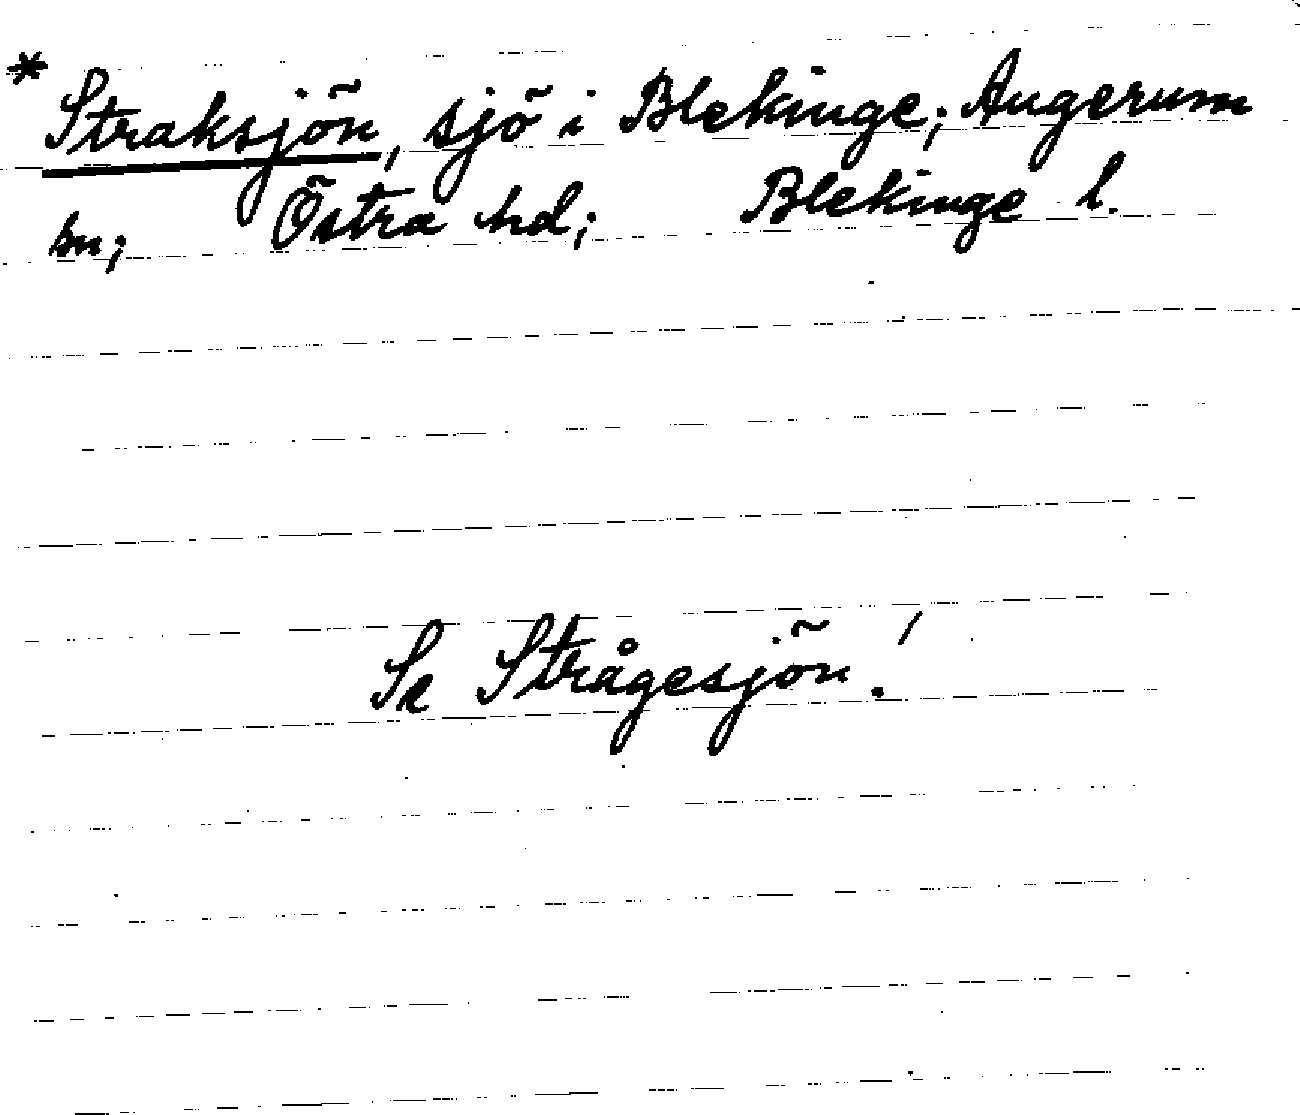 * Straksjön, sjö i Blekinge; Augerum
sn; Östra hd; Blekinge l.
Se Strågesjön!